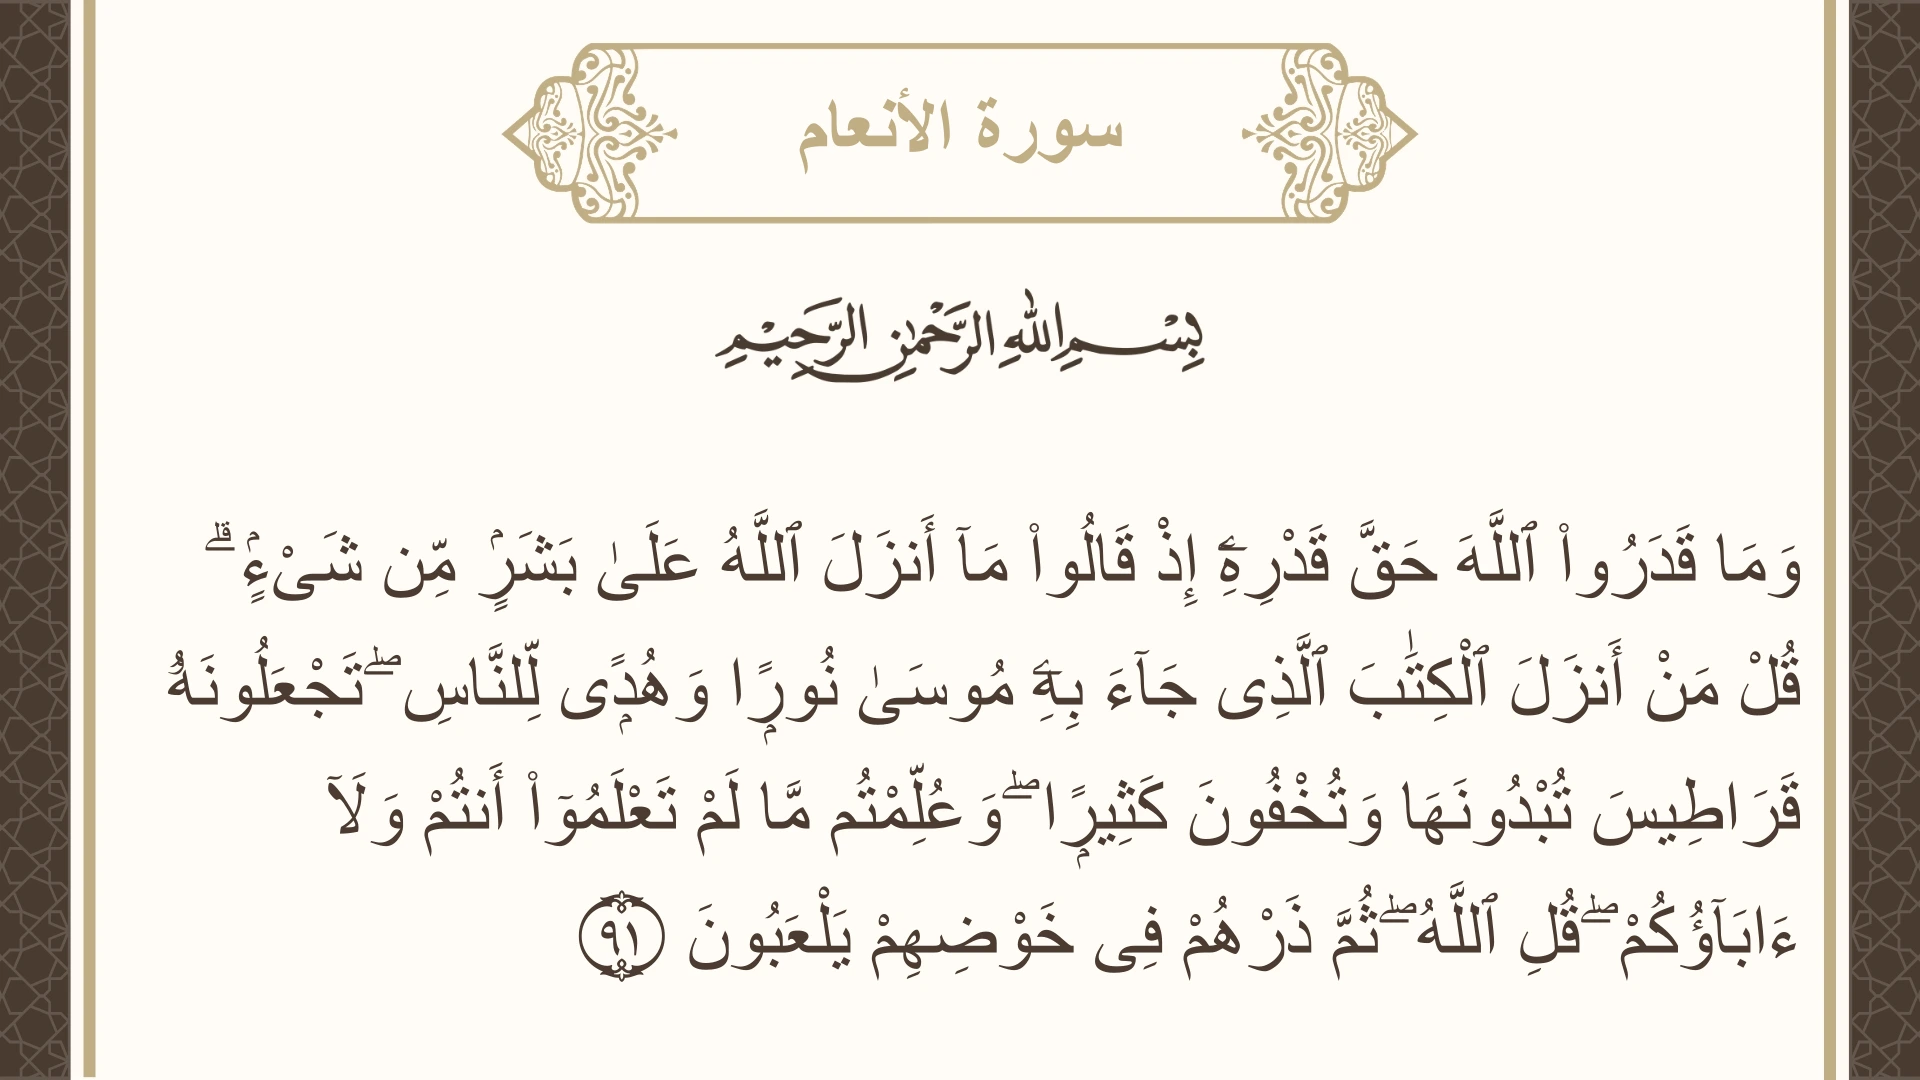 سورة الأنعام
بِسْمِ اللهِ الرَّحْمٰنِ الرَّحِيْمِ
وَمَا قَدَرُوا۟ ٱللَّهَ حَقَّ قَدْرِهِۦٓ إِذْ قَالُوا۟ مَآ أَنزَلَ ٱللَّهُ عَلَىٰ بَشَرٍۢ مِّن شَىْءٍۢ ۗ
قُلْ مَنْ أَنزَلَ ٱلْكِتَـٰبَ ٱلَّذِى جَآءَ بِهِۦ مُوسَىٰ نُورًۭا وَهُدًۭى لِّلنَّاسِ ۖ تَجْعَلُونَهُۥ
قَرَاطِيسَ تُبْدُونَهَا وَتُخْفُونَ كَثِيرًۭا ۖ وَعُلِّمْتُم مَّا لَمْ تَعْلَمُوٓا۟ أَنتُمْ وَلَآ
ءَابَآؤُكُمْ ۖ قُلِ ٱللَّهُ ۖ ثُمَّ ذَرْهُمْ فِى خَوْضِهِمْ يَلْعَبُونَ ٩١